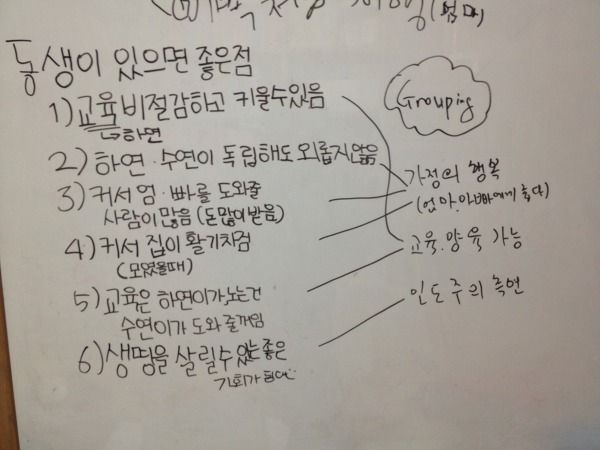 동생이 있으면 좋은점
1) 교육비절감하고 키울수있음
↳하면
2) 하연·수연이 독립해도 외롭지않음
3) 커서 엄·빠를 도와줄
사람이 많음 (돈많이받음)
4) 커서 집이 활기차짐
(모였을때)
5) 교육은 하연이가
수연이가 도와줄꺼임
6) 생명을 살릴수있는좋은
기회가
Grouping
가정의 행복
(엄마.아빠에게 좋다)
교육.양육 가능
인도주의 측면